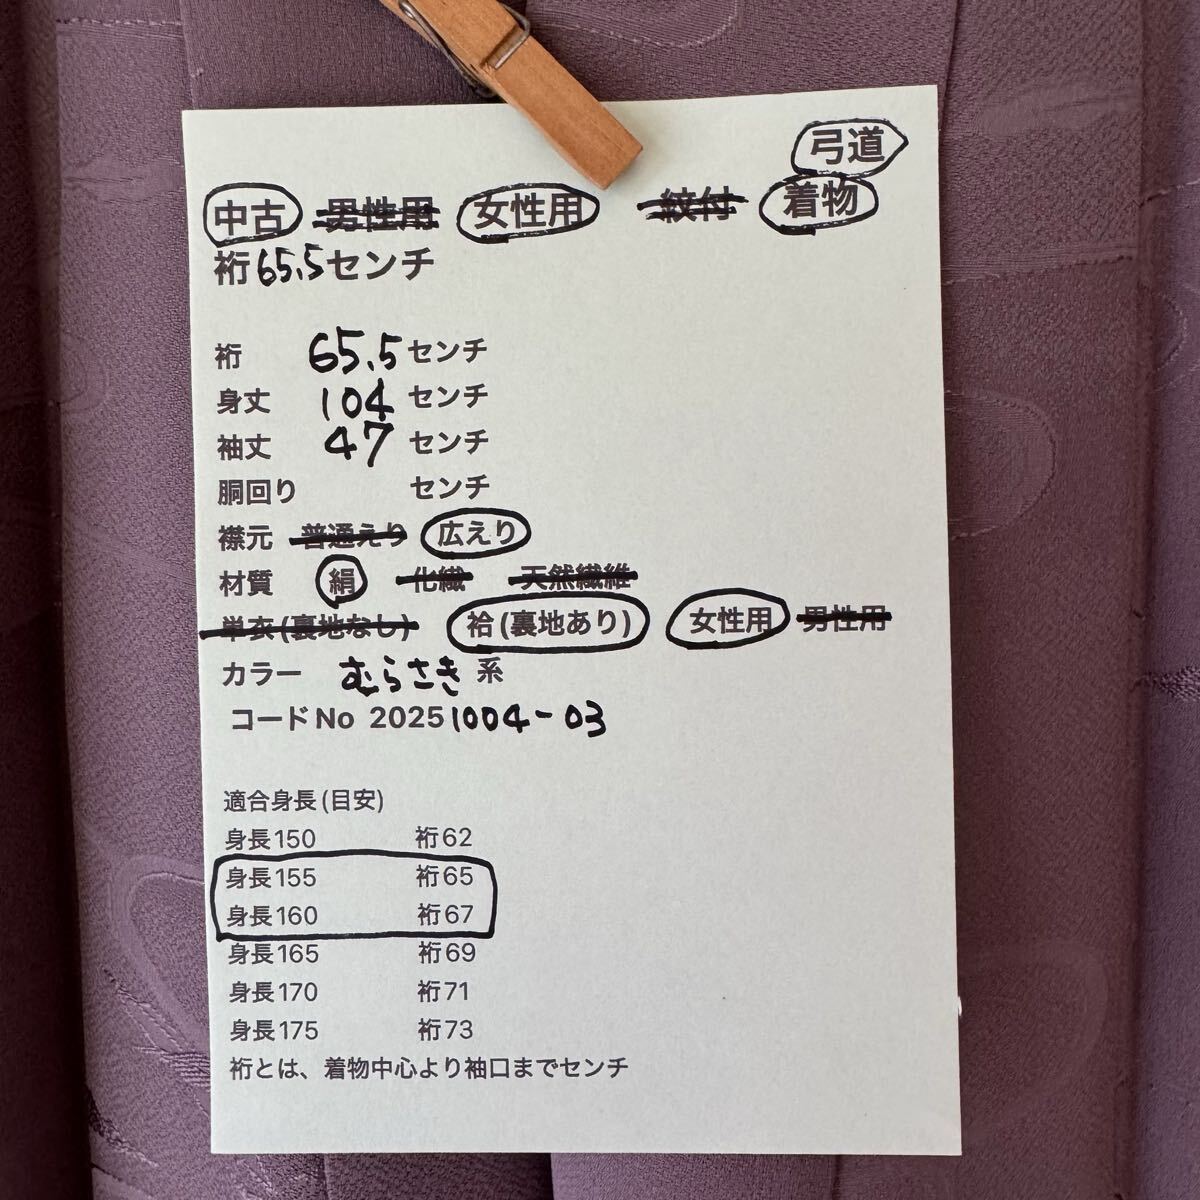 弓道
中古 男性用 女性用 紋付 着物
裄65.5センチ
裄 65.5センチ
身丈 104 センチ
袖丈 47 センチ
胴回り センチ
襟元 普通えり 広えり
材質 絹 化繊 天然繊維
単衣(裏地なし) 袷(裏地あり) 女性用 男性用
カラー むらさき 系
コードNo 20251004-03
適合身長(目安)
身長150 裄62
身長155 裄65
身長160 裄67
身長165 裄69
身長170 裄71
身長175 裄73
裄とは、着物中心より袖口までセンチ